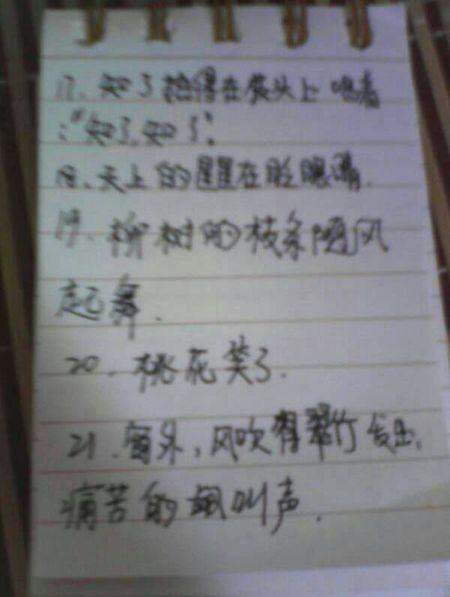 17、知了抬得在袋头上 唱着
："知了,知了"。
18、天上的星星在眨眼睛.
19、柳树的枝条随风
起舞.
20、桃花笑了.
21、窗外,风吹着翠竹发出,
痛苦的 叫声.